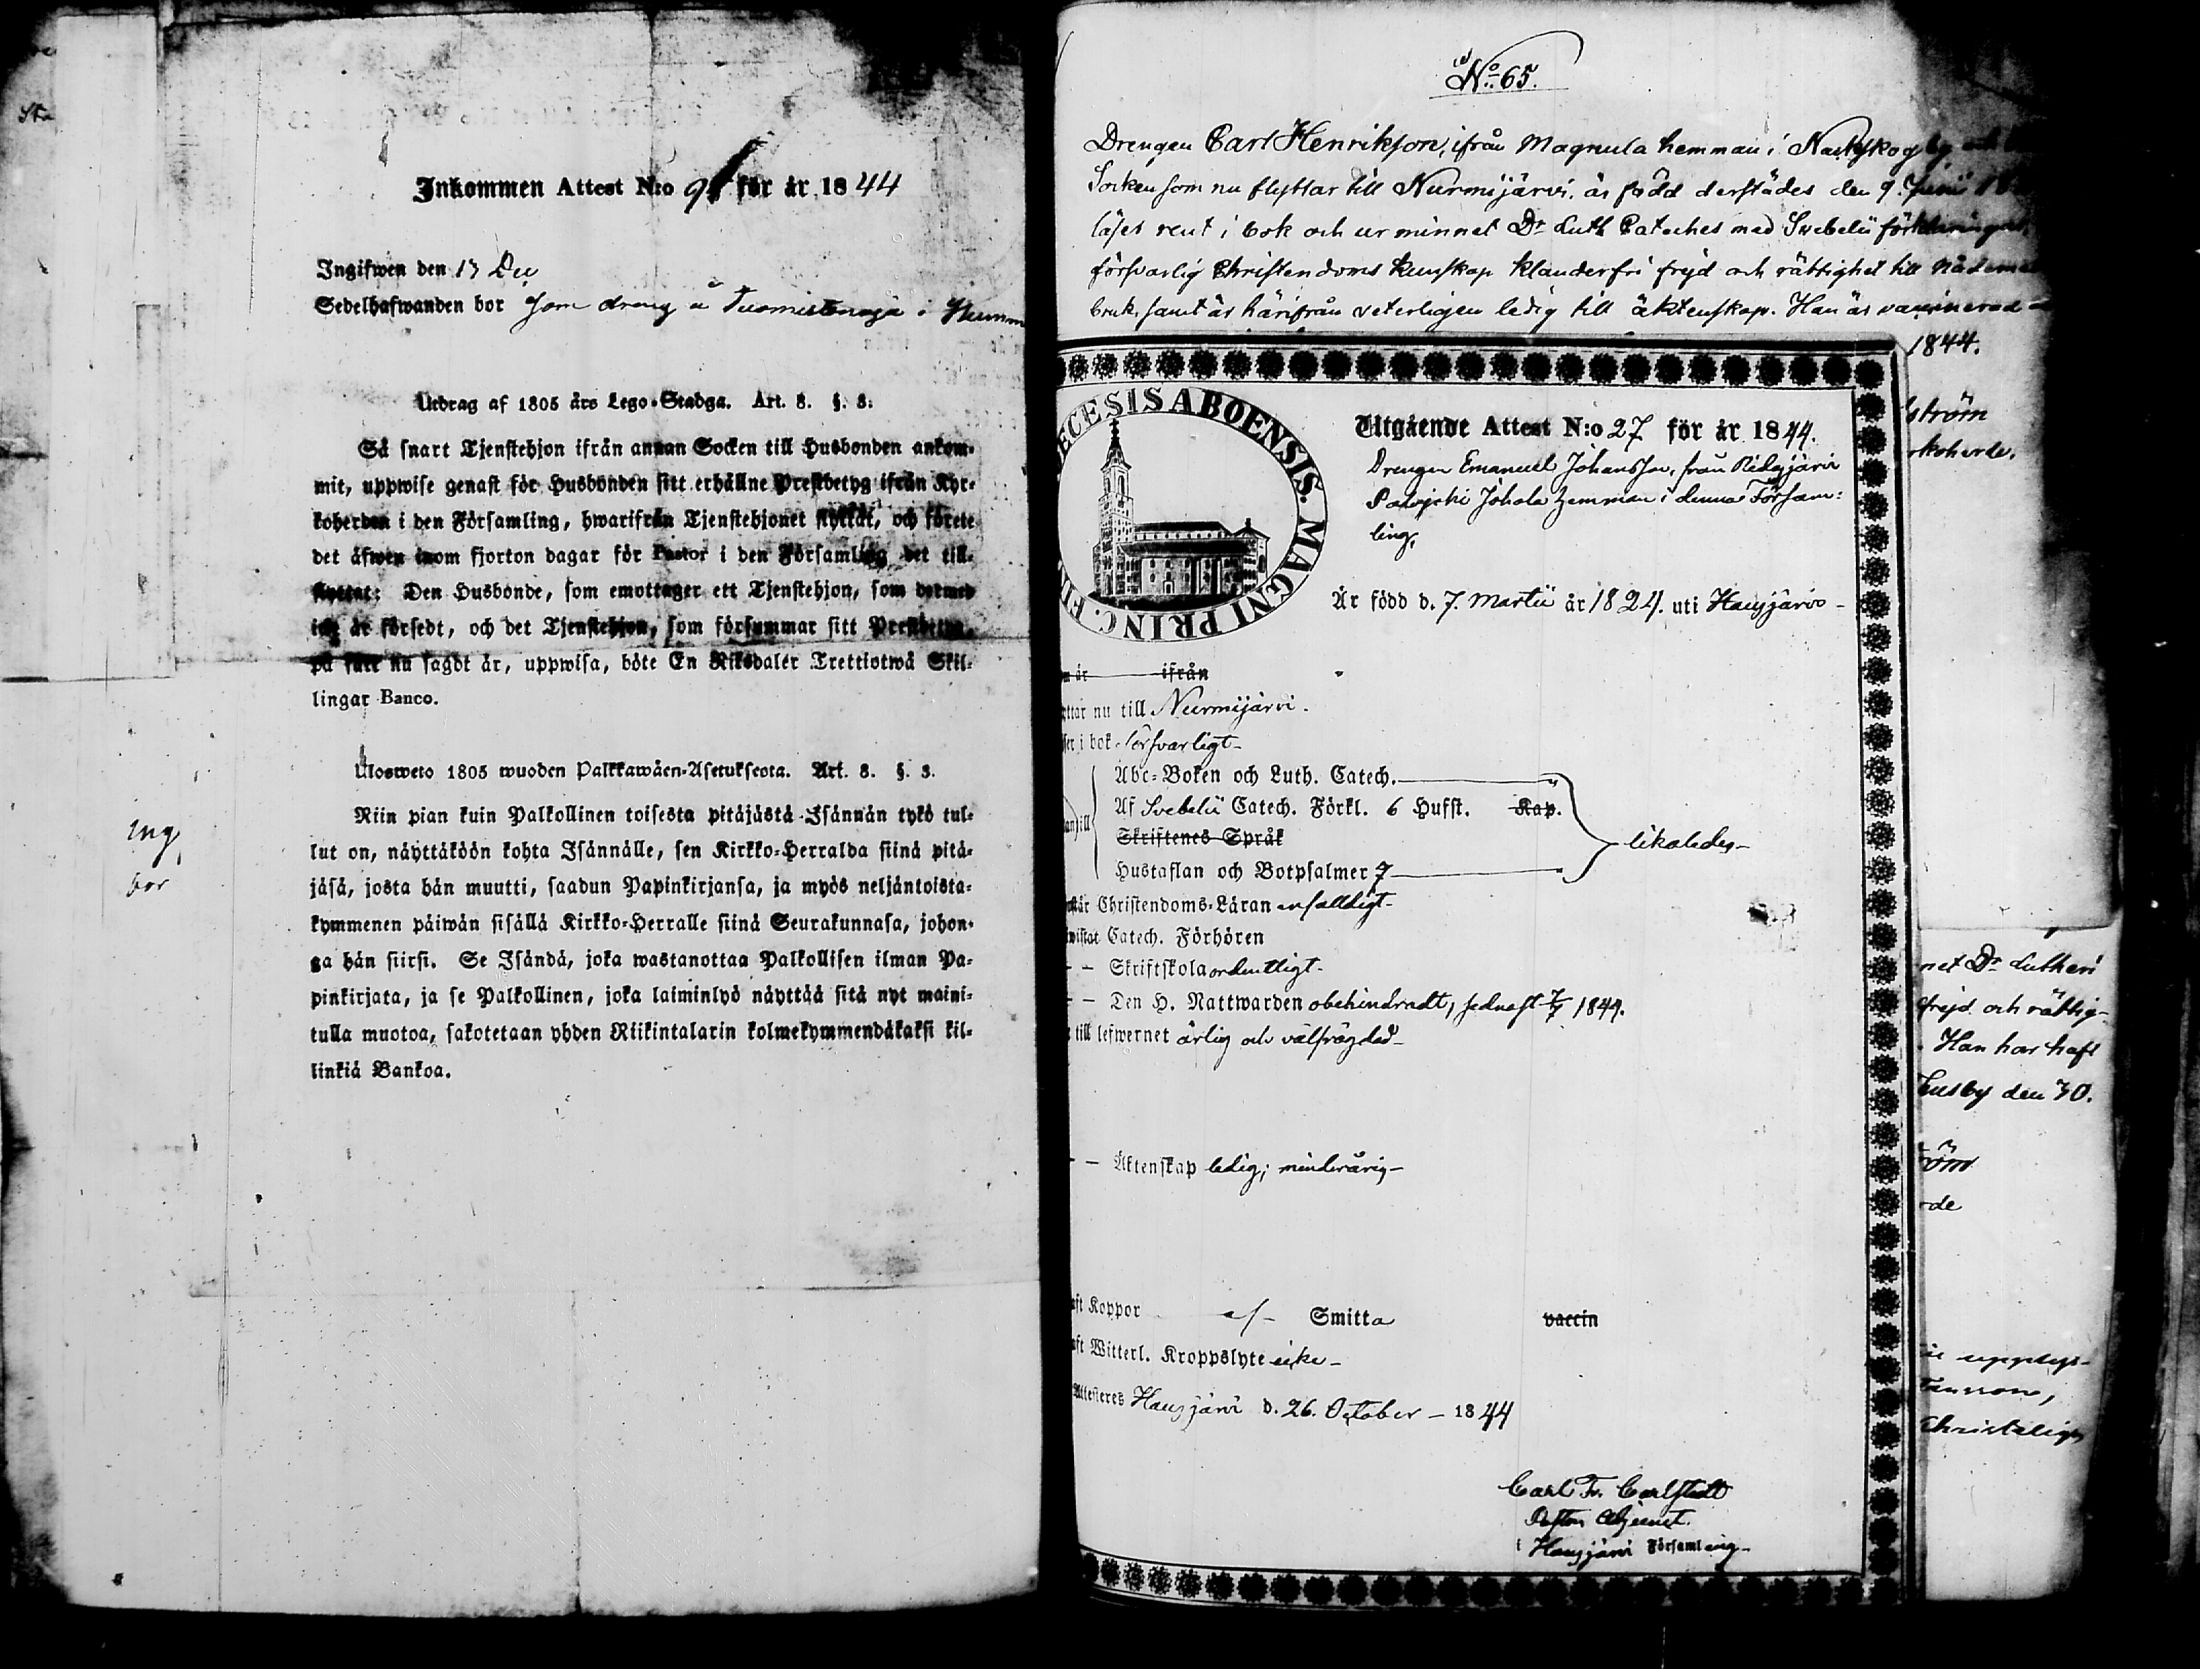 Inkommen Attest N:o 91 för år 1844
Ingifwen den 13 Dec
Sedelhafwanden bor som dreng å Tuomistonoja i
Utdrag af 1805 års Lego-Stadga. Art. 8. §. 3.
Så snart Tjenstehjon ifrån annan Socken till Husbonden ankom-
mit, uppwise genast för Husbonden sitt erhållne Prestbetyg ifrån Kyr-
koherden i den Församling, hwarifrån Tjenstehjonet flyttat, och förete
det äfwen inom fjorton dagar för Pastor i den Församling det till-
flyttat: Den Husbonde, som emottager ett Tjenstehjon, som dermed
icke är försedt, och det Tjenstehjon, som försummar sitt Prestbetyg,
på sätt nu sagdt är, uppwisa, böte En Riksdaler Trettiotwå Skil-
lingar Banco.
Ulosweto 1805 wuoden Palkkawäen-Asetuksesta. Art. 8. §. 3.
Niin pian kuin Palkollinen toisesta pitäjästä Isännän tykö tul-
lut on, näyttäköön kohta Isännälle, sen Kirkko-Herralda siinä pitä-
jäsä, josta hän muutti, saadun Papinkirjansa, ja myös neljäntoista-
kymmenen päiwän sisällä Kirkko-Herralle siinä Seurakunnasa, johon-
ga hän siirsi. Se Isändä, joka wastanottaa Palkollisen ilman Pa-
pinkirjata, ja se Palkollinen, joka laiminlyö näyttää sitä nyt maini-
tulla muotoa, sakotetaan yhden Riikintalarin kolmekymmendäkaksi kil-
linkiä Bankoa.
Ing
bor
No 65.
Drengen Carl Henrikson, ifrån Magnula hemman i Nackskog by och
Socken som nu flyttar till Nurmijärvi, är född derstädes den 9. Junii
läser rent i bok och ur minnet Dr Luth Cateches med Svebelii förklaringar,
försvarlig Christendoms kunskap klanderfri frejd och rättighet till
bruk, samt är härifrån veterligen ledig till äktenskap. Han är vaccinerad
1844.
ström
rkoherde.
DIECESIS ABOENSIS. MAGNI PRINC.
Utgående Attest N:o 27 för år 1844.
Drengen Emanuel Johansson, från Ridasjärvi
Johola hemman i denna Försam:
ling,
Är född d. 7. Martii år 1824. uti Hausjärvi -
år ifrån
nu till Nurmijärvi.
i bok försvarligt -
Abc-Boken och Luth. Catech.
Af Svebelii Catech. Förkl. 6 Hufst. Kap.
Skriftenes Språk
likaledes -
Hustaflan och Botpsalmer 7
Christendoms-Läran enfalldigt -
Catech. Förhören
- - Skriftskola ordentligt -
- - Den H. Nattwarden obehindradt, sednast 7/7 1844.
till lefwernet ärlig och välfrägdad -
- - Äktenskap ledig; minderårig -
Koppor af - Smitta vaccin
Witterl. Kroppslyte icke -
Attesteres Hausjärvi d. 26. October - 1844
Carl Fr. Carlstedt
Pastors Adjunct.
i Hausjärvi Församling -
net Dr Lutheri
frejd och rättig-
Han har haft
Tusby den 30.
röm
rde